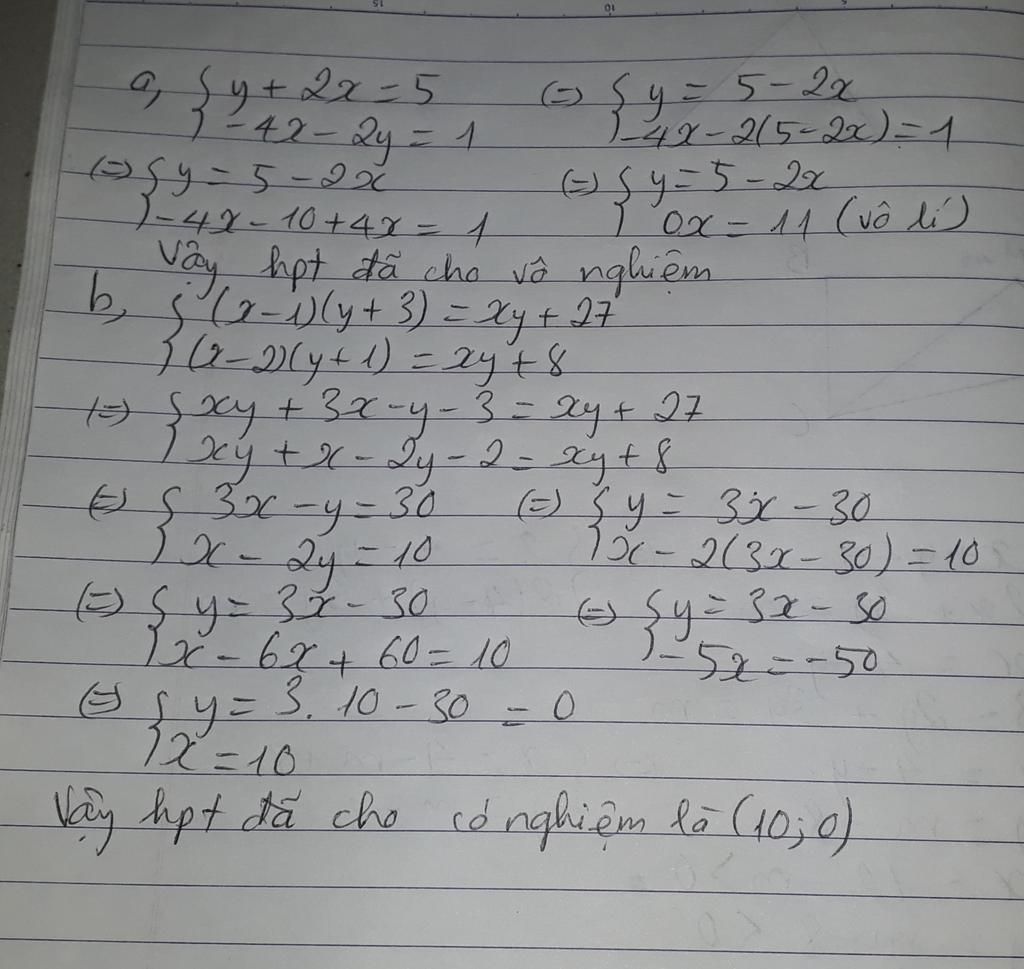 a, { y + 2x = 5 (=) { y = 5 - 2x
-4x - 2y = 1 -4x - 2(5 - 2x) = 1
(=) { y = 5 - 2x (=) { y = 5 - 2x
-4x - 10 + 4x = 1 0x = 11 (vô lí)
Vậy hpt đã cho vô nghiệm
b, { (x - 1)(y + 3) = xy + 27
(x - 2)(y + 1) = xy + 8
(=) { xy + 3x - y - 3 = xy + 27
xy + x - 2y - 2 = xy + 8
(=) { 3x - y = 30 (=) { y = 3x - 30
x - 2y = 10 x - 2(3x - 30) = 10
(=) { y = 3x - 30 (=) { y = 3x - 30
x - 6x + 60 = 10 -5x = -50
(=) { y = 3. 10 - 30 = 0
x = 10
Vậy hpt đã cho có nghiệm là (10; 0)